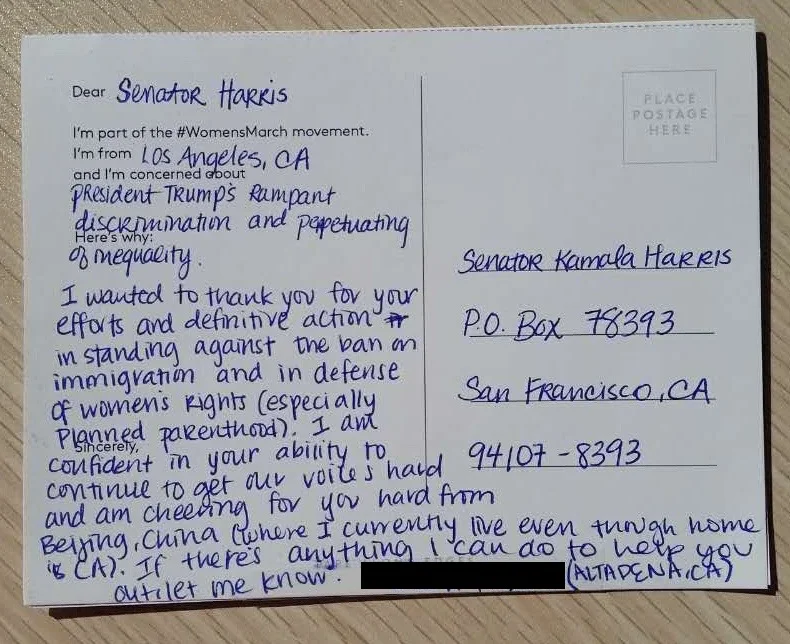 Dear Senator Harris
I'm part of the #WomensMarch movement.
I'm from Los Angeles, CA
and I'm concerned about
President Trump's rampant
discrimination and perpetuating
Here's why:
of inequality.
I wanted to thank you for your
efforts and definitive action
in standing against the ban on
immigration and in defense
of women's rights (especially
Planned parenthood). I am
Sincerely,
confident in your ability to
continue to get our voices hard
and am cheering for you hard from
Beijing, China (where I currently live even though home
is CA). If there's anything I can do to help you
out, let me know.
(ALTADENA, CA)
PLACE
POSTAGE
HERE
Senator Kamala Harris
P.O. Box 78393
San Francisco, CA
94107-8393